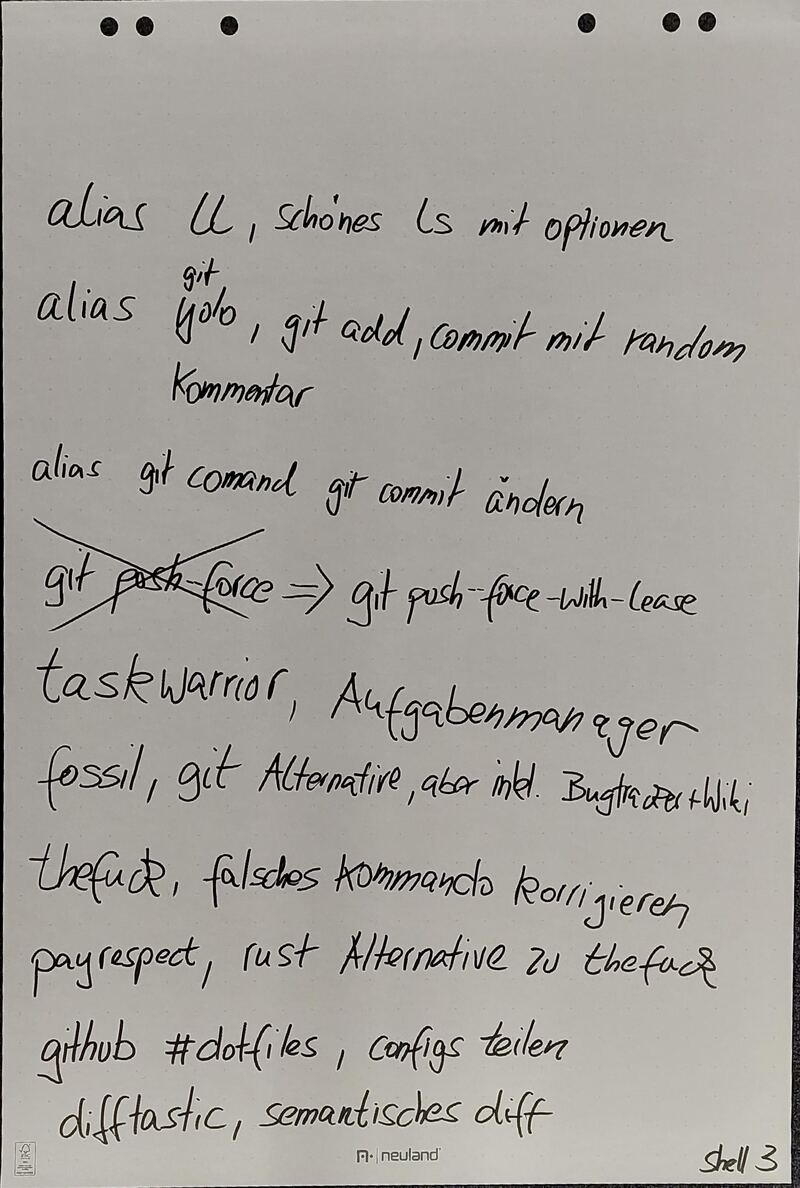 alias ll, schönes ls mit optionen
git
alias yolo, git add, commit mit random
Kommentar
alias git comand git commit ändern
git push-force => git push--force-with-lease
taskwarrior, Aufgabenmanager
fossil, git Alternative, aber inkl. Bugtracker + Wiki
thefuck, falsches Kommando korrigieren
payrespect, rust Alternative zu thefuck
github #dotfiles, configs teilen
difftastic, semantisches diff
neuland
Shell 3